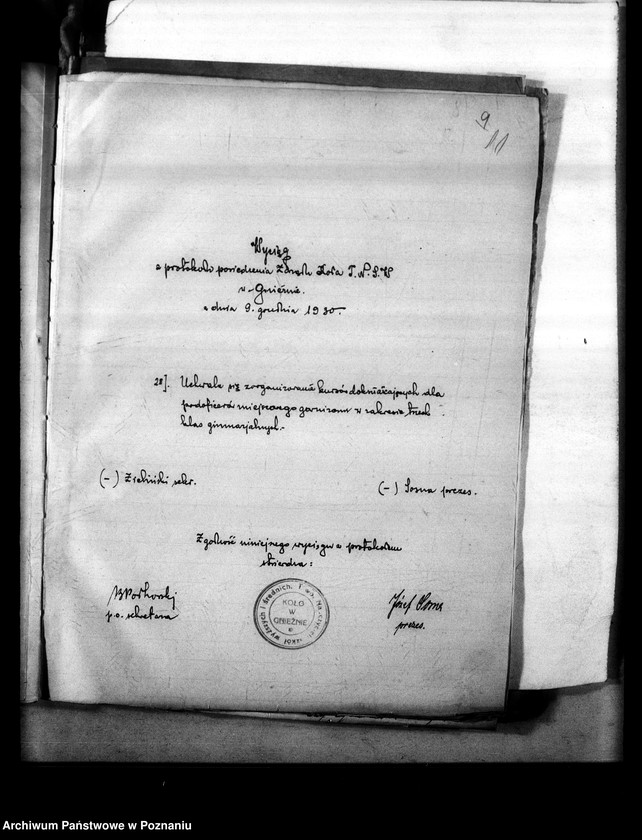 9
11
Wyciąg
z protokołu posiedzenia Zarządu Koła T.N.S.W
w Gnieźnie.
z dnia 9. grudnia 1930.
28]. Uchwala się zorganizowanie kursów dokształcających dla
podoficerów miejscowego garnizonu w zakresie trzech
klas gimnazjalnych.-
(-) Zieliński sekr.
(-) Sosna prezes.
Zgodność niniejszego wyciągu z protokołem
stwierdza:
p.o. sekretarza
Józef Sosna
prezes.
KOŁO
W
GNIEŹNIE
wyższych i średnich.
Archiwum Państwowe w Poznaniu